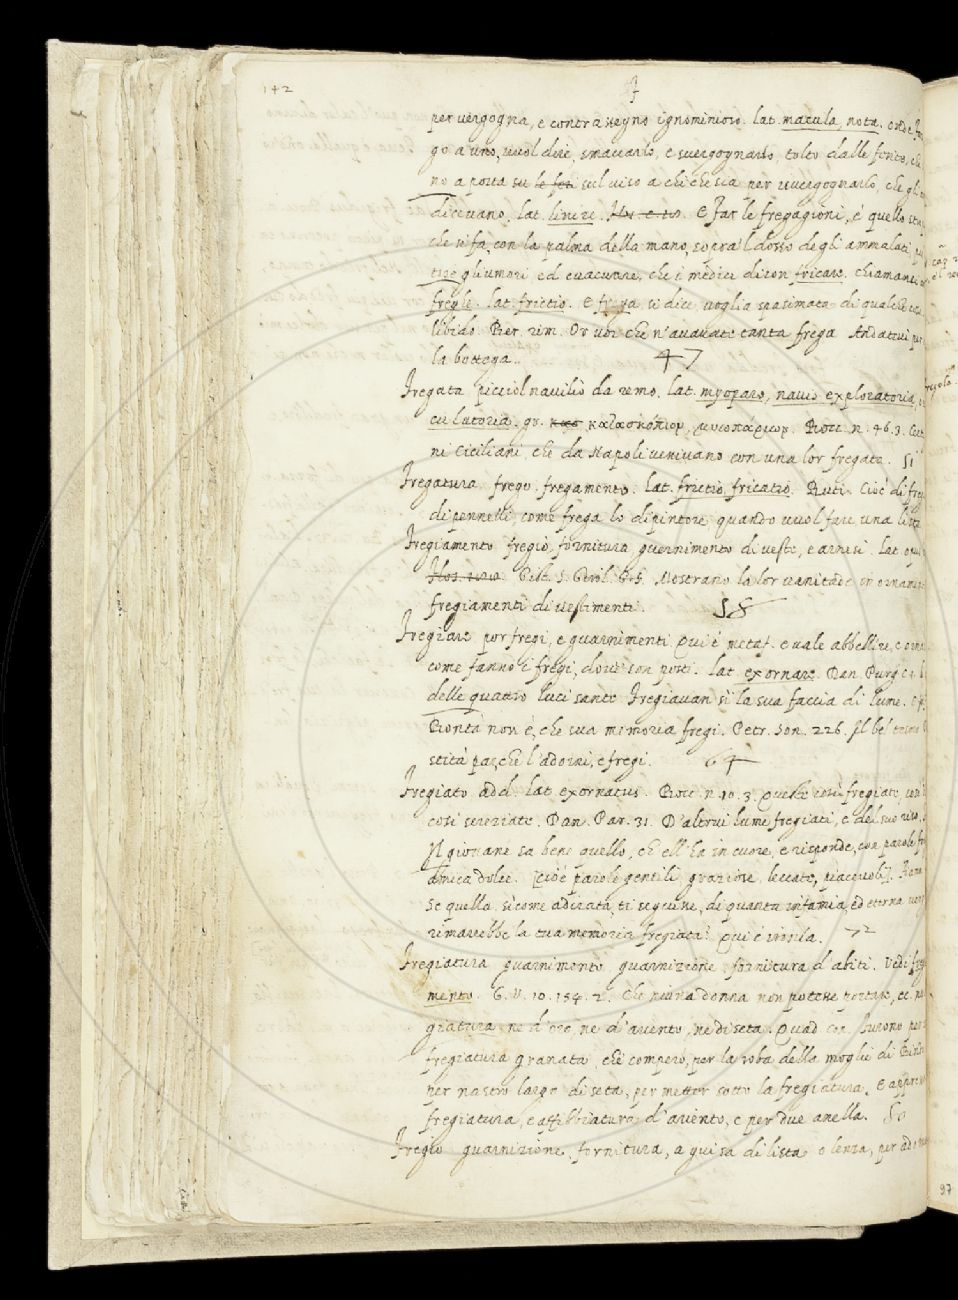 142 F
per vergogna, e contrassegno ignominioso. lat. macula, nota, onde
go a uno, vuol dire, smaccarlo, e svergognarlo, tolto dalle
no a posta su le sul viso a chi che sia per isvergognarlo, che gli
dicevano, lat. linere. E Far le fregagioni, è quello
che si fa, con la palma della mano, sopra 'l dosso degli ammalati,
tire gli umori ed evacuare, che i medici dicon fricare. chiamansi
freghe. lat. frictio. E frega si dice voglia spasimata di qualche
libido. Ber. rim. Or voi che n'avavate tanta frega Andatevi per
la bottega. 47
Fregata picciol navilio da remo. lat. myoparo, navis exploratoria,
culatoria. gr. κατασκόπιον, μυοπάρων. Bocc. n. 46. 3.
ni Ciciliani, che da Napoli venivano con una lor fregata. 51
Fregatura frego. fregamento. lat. frictio, fricatio. Buti. Cioè di
di pennelli, come frega lo dipintore, quando vuol fare una
Fregiamento fregio, fornitura, guernimento di veste, e arnesi. lat.
Mostrano la lor vanitade in
fregiamenti di vestimenti. 58
Fregiare por fregi, e guarnimenti Qui è metaf. e vale abbellire, e
come fanno i fregi, dove son posti. lat. exornare. Dan. Purg.
delle quattro luci sante Fregiavan sì la sua faccia di lume.
Bontà non è, che sua memoria fregi. Petr. Son. 226. Il bel
stità par, che l'adorni, e fregi. 64
Fregiato add. lat. exornatus. Bocc. n. 10. 3. Queste così fregiate,
così screziate. Dan. Par. 31. D'altrui lume fregiati, e del suo riso,
Il giovane sa bene quello, ch'ell'ha in cuore, e risponde, con parole
amica dolce. [cioè parole gentili graziose, leccate, piacevoli].
se quella sì come adirata, ti seguisse, di quanta infamia, ed eterna
rimarebbe la tua memoria fregiata? Qui è ironia. 72
Fregiatura guarnimento guarnizione fornitura d'abiti. Vedi
mento. G. V. 10. 154. 2. Che niuna donna non potesse portare, ec.
giatura ne d'oro, ne d'ariento, ne di seta. Quad
fregiatura granata, che compero, per la roba della moglie di
per nastro largo di seta, per metter sotto la fregiatura. E
fregiatura, e affibbiatura d'ariento, e per due anella. 80
Fregio guarnizione, fornitura, a guisa di lista o lenza, per
97